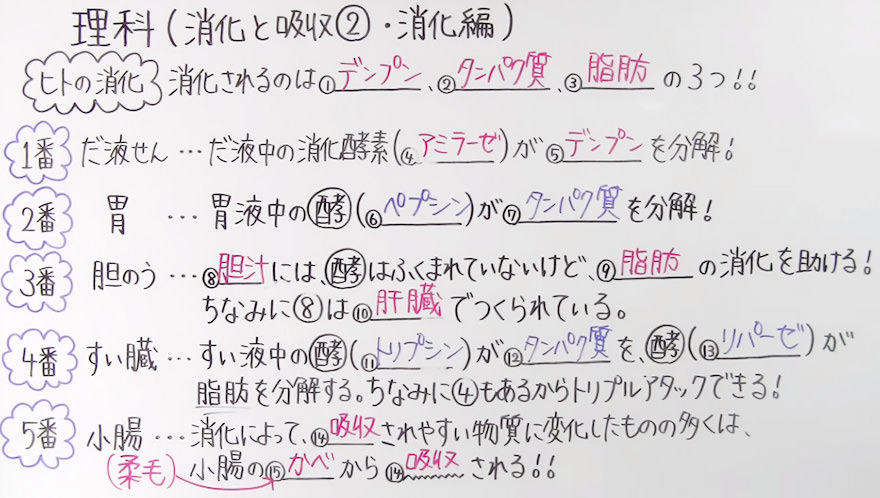 理科(消化と吸収②・消化編)
ヒトの消化 消化されるのは①デンプン、②タンパク質、③脂肪の3つ!!
1番 だ液せん…だ液中の消化酵素(④アミラーゼ)が⑤デンプンを分解!
2番 胃…胃液中の酵(⑥ペプシン)が⑦タンパク質を分解!
3番 胆のう…⑧胆汁には、酵はふくまれていないけど、⑨脂肪の消化を助ける!
ちなみに⑧は⑩肝臓でつくられている。
4番 すい臓…すい液中の酵(⑪トリプシン)が⑫タンパク質を、酵(⑬リパーゼ)が
脂肪を分解する。ちなみに④もあるからトリプルアタックできる!
5番 小腸…消化によって、⑭吸収されやすい物質に変化したものの多くは、
(柔毛) 小腸の⑮かべから⑭吸収される!!